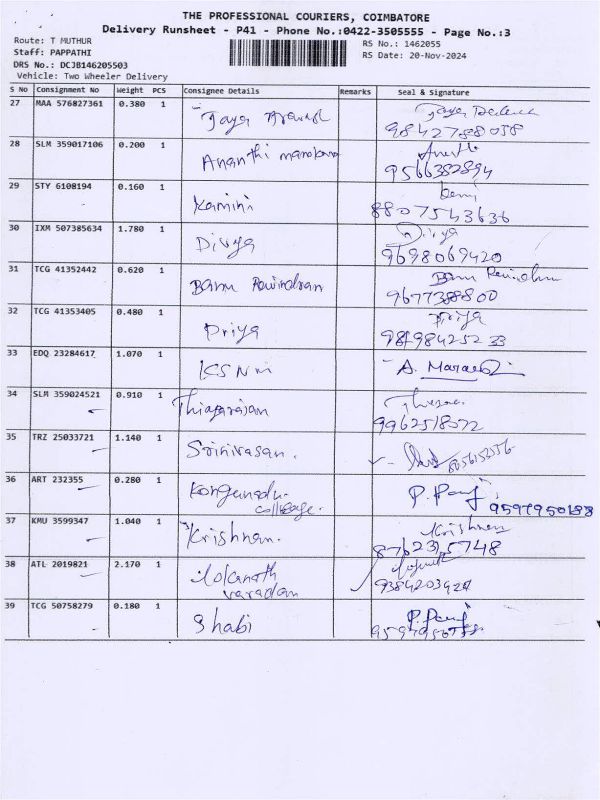 THE PROFESSIONAL COURIERS, COIMBATORE
Delivery Runsheet - P41 - Phone No.:0422-3505555 - Page No.:3
Route: T MUTHUR RS No.: 1462055
Staff: PAPPATHI RS Date: 20-Nov-2024
DRS No.: DCJB146205503
Vehicle: Two Wheeler Delivery
S No Consignment No Weight PCS Consignee Details Remarks Seal & Signature
27 MAA 576827361 0.380 1 Jaya
9842788038
28 SLM 359017106 0.200 1 Ananthi
9566382894
29 STY 6108194 0.160 1 Kamini
8807543636
30 IXM 507385634 1.780 1 Divya Divya
9698069420
31 TCG 41352442 0.620 1 Banu Rawindran Banu
9677388800
32 TCG 41353405 0.480 1 Priya Priya
33 EDQ 23284617 1.070 1 KSNM A.
34 SLM 359024521 0.910 1 Thiagarajan
9962518022
35 TRZ 25033721 1.140 1 Srinivasan.
36 ART 232355 0.280 1 Kongunadu P.
college. 9597950188
37 KMU 3599347 1.040 1 Krishnan. Krishnan
8762315748
38 ATL 2019821 2.170 1 Lokanath
varadan 9384203924
39 TCG 50758279 0.180 1 Shabi P.